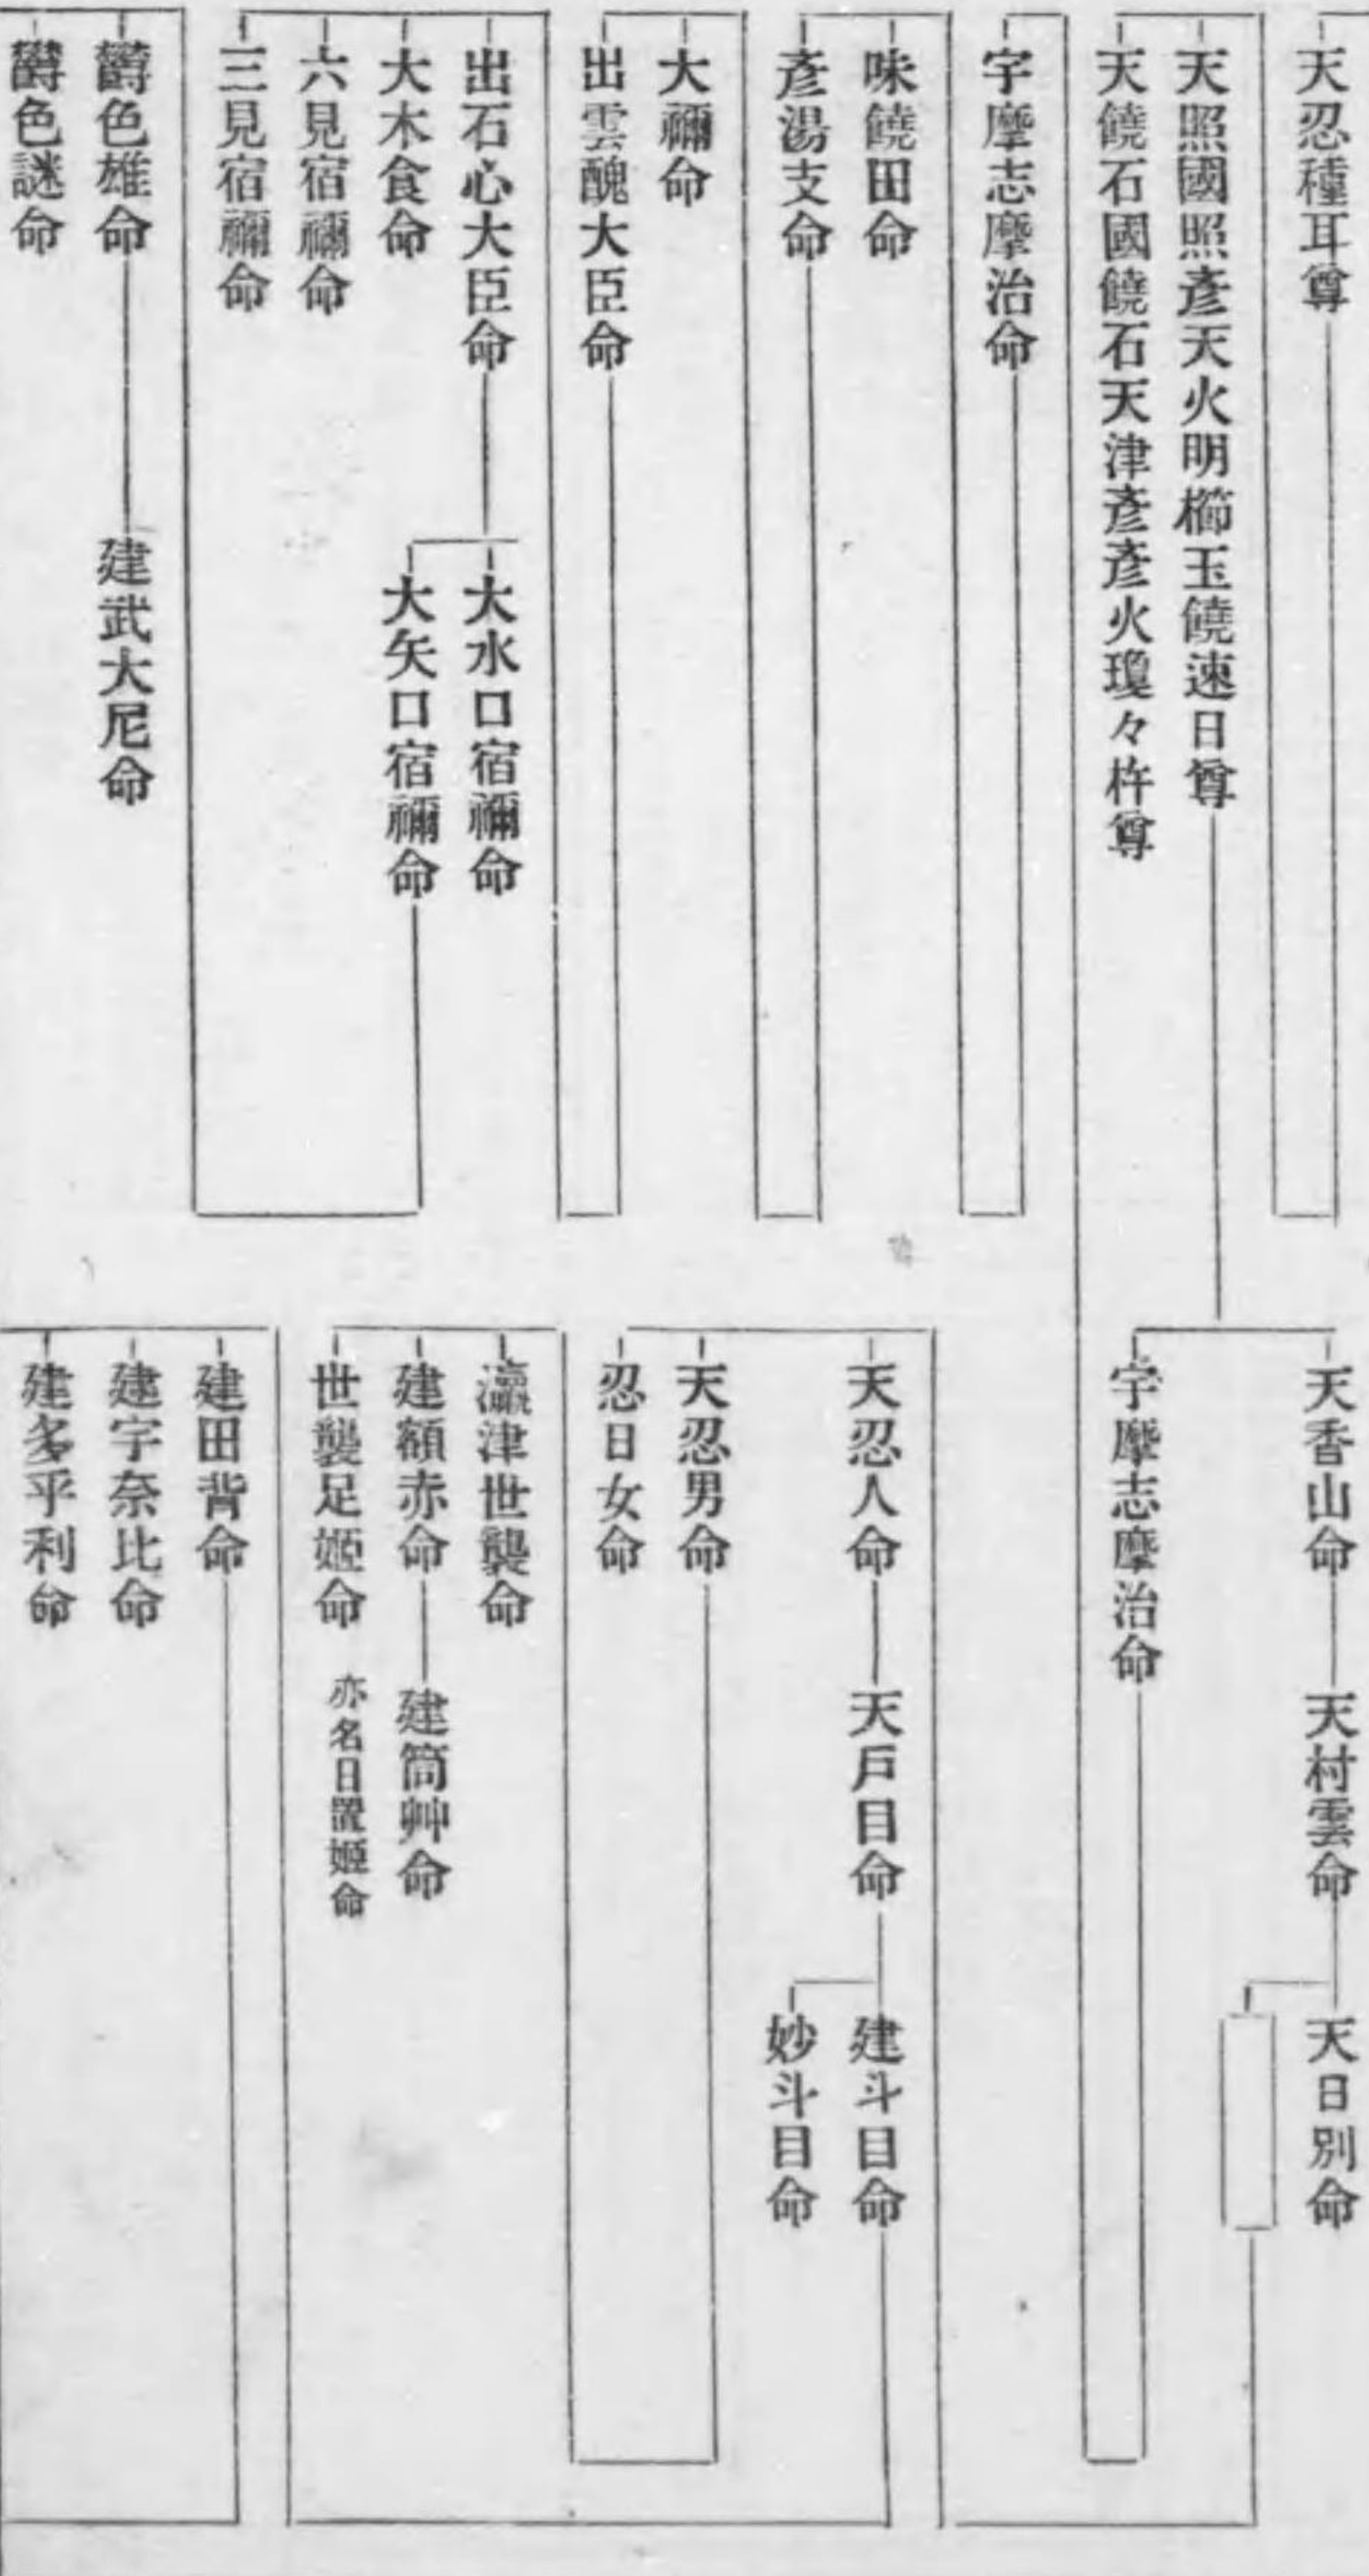 天忍種耳尊
天照國照彥天火明櫛玉饒速日尊
天饒石國饒石天津彥彥火瓊々杵尊
宇摩志摩治命
味饒田命
彥湯支命
大禰命
出雲醜大臣命
出石心大臣命
大水口宿禰命
大矢口宿禰命
大木食命
六見宿禰命
三見宿禰命
欝色雄命
建武大尼命
欝色謎命
天香山命
天村雲命
天日別命
宇摩志摩治命
天忍人命
天戶目命
建斗目命
妙斗目命
天忍男命
忍日女命
瀛津世襲命
建額赤命
建筒艸命
世襲足姬命
亦名日置姬命
建田背命
建宇奈比命
建多乎利命